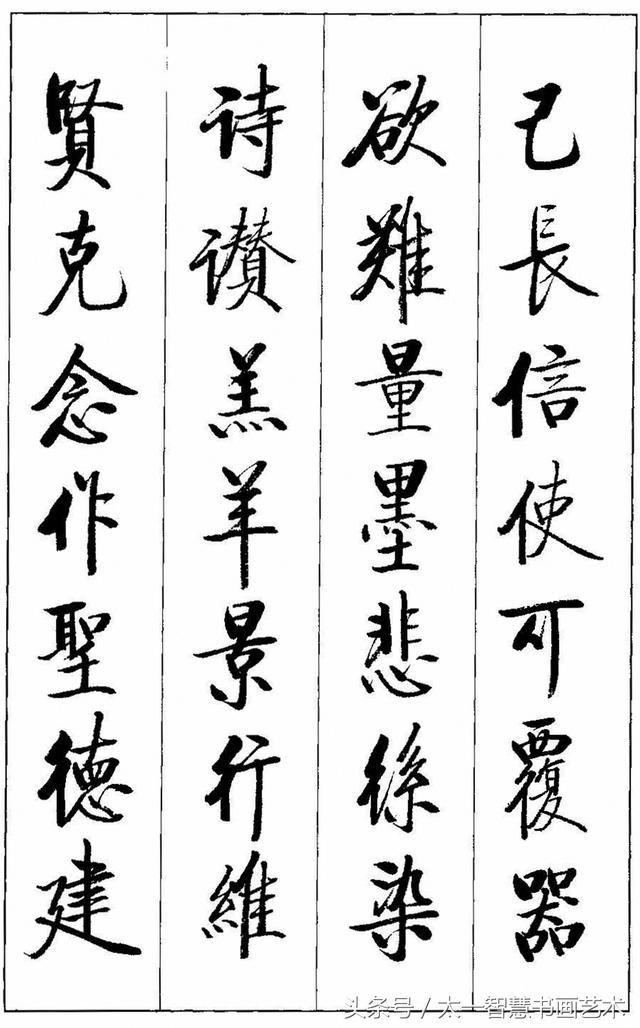 己長信使可覆器
欲難量墨悲絲染
詩讚羔羊景行維
賢克念作聖德建
头条号 / 太一智慧书画艺术